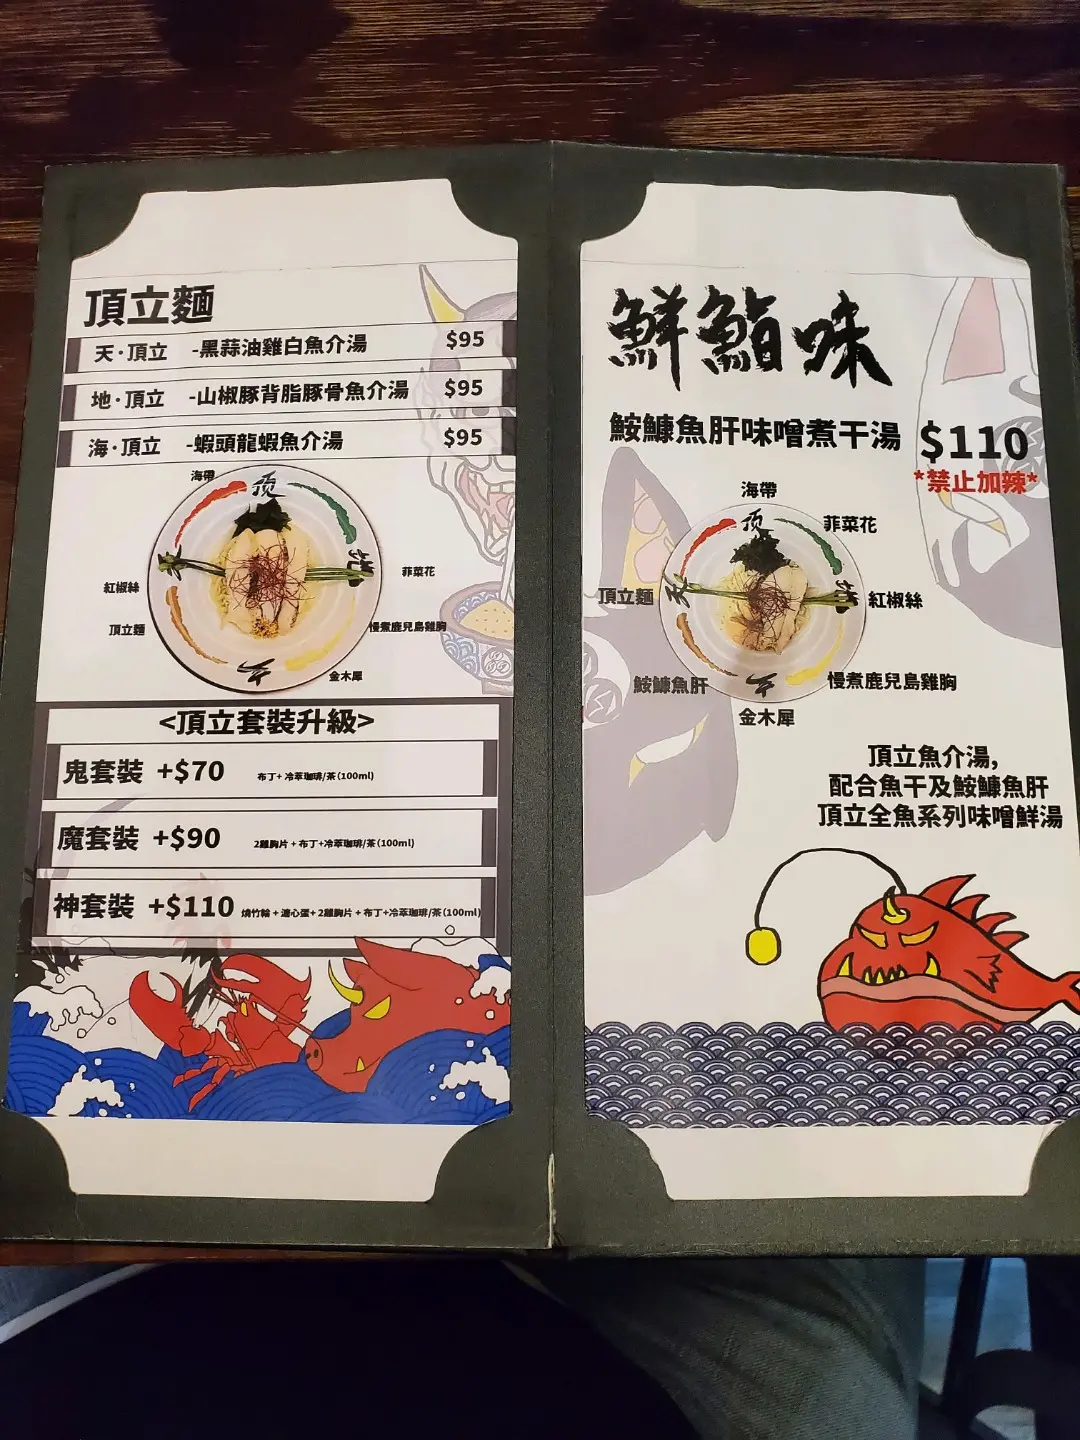 頂立麵
天·頂立 -黑蒜油雞白魚介湯 $95
地·頂立 -山椒豚背脂豚骨魚介湯 $95
海·頂立 -蝦頭龍蝦魚介湯 $95
海帶
頂
地
紅椒絲
菲菜花
頂立麵
慢煮鹿兒島雞胸
金木犀
立
<頂立套裝升級>
鬼套裝 +$70 布丁+ 冷萃珈琲/茶(100ml)
魔套裝 +$90 2雞胸片 + 布丁+冷萃珈琲/茶(100ml)
神套裝 +$110 燒竹輪 + 溏心蛋+ 2雞胸片 + 布丁+冷萃珈琲/茶(100ml)
鮮鮨味
鮟鱇魚肝味噌煮干湯 $110
*禁止加辣*
海帶
頂
菲菜花
頂立麵
天
地
紅椒絲
鮟鱇魚肝
慢煮鹿兒島雞胸
立
金木犀
頂立魚介湯,
配合魚干及鮟鱇魚肝
頂立全魚系列味噌鮮湯